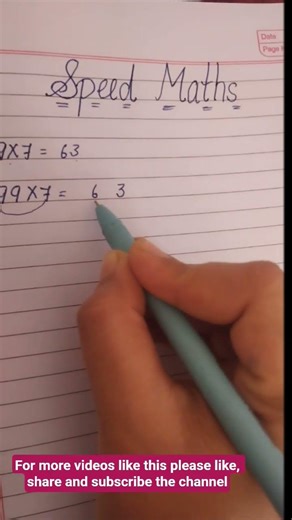 Date
Page
Speed Maths
9×7 = 63
99×7 = 6 3
For more videos like this please like,
share and subscribe the channel